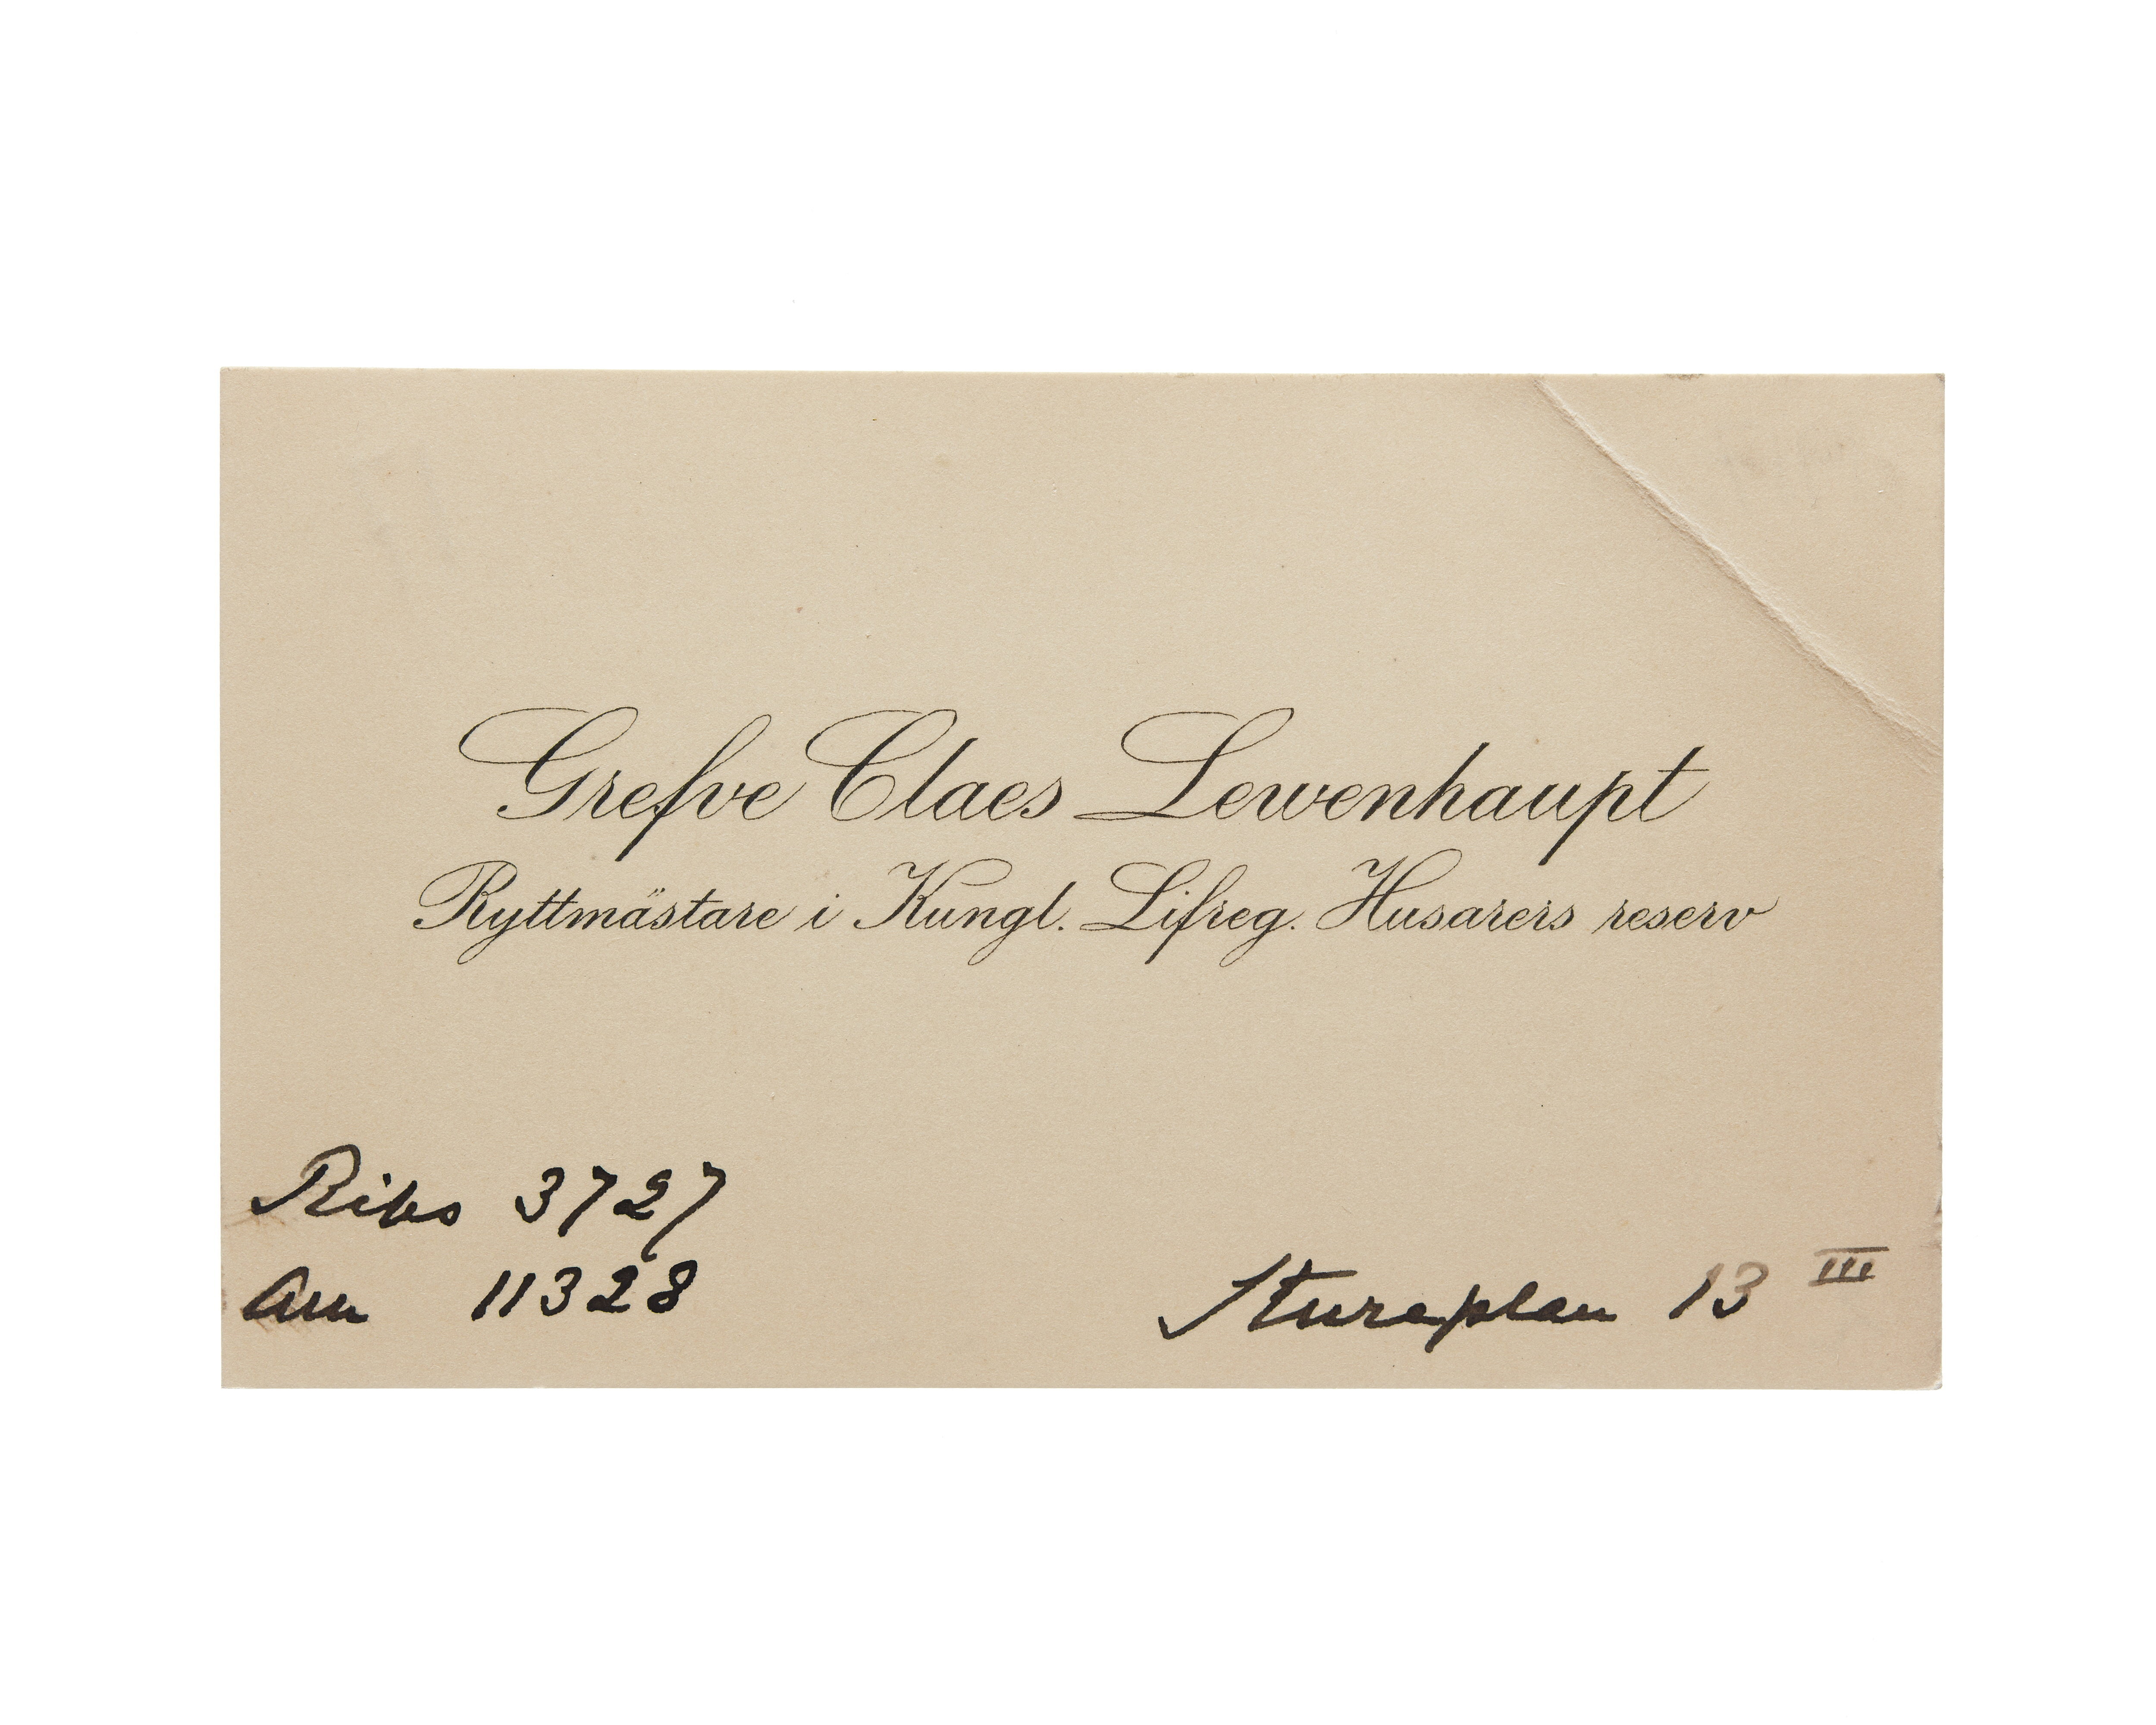 Grefve Claes Lewenhaupt
Ryttmästare i Kungl. Lifreg. Husarers reserv
Riks 3727
Am 11328
Stureplan 13 III